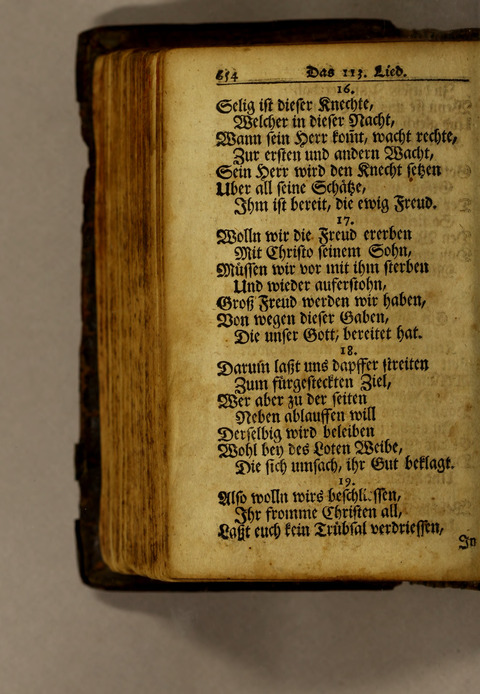 654 Das 113. Lied.
16.
Selig ist dieser Knechte,
Welcher in dieser Nacht,
Wann sein Herr kom̄t, wacht rechte,
Zur ersten und andern Wacht,
Sein Herr wird den Knecht setzen
Uber all seine Schätze,
Ihm ist bereit, die ewig Freud.
17.
Wolln wir die Freud ererben
Mit Christo seinem Sohn,
Müssen wir vor mit ihm sterben
Und wieder auferstohn,
Groß Freud werden wir haben,
Von wegen dieser Gaben,
Die unser Gott, bereitet hat.
18.
Darum laßt uns dapffer streiten
Zum fürgesteckten Ziel,
Wer aber zu der seiten
Neben ablauffen will
Derselbig wird beleiben
Wohl bey des Loten Weibe,
Die sich umsach, ihr Gut beklagt.
19.
Also wolln wirs beschliessen,
Ihr fromme Christen all,
Laßt euch kein Trübsal verdriessen,
In